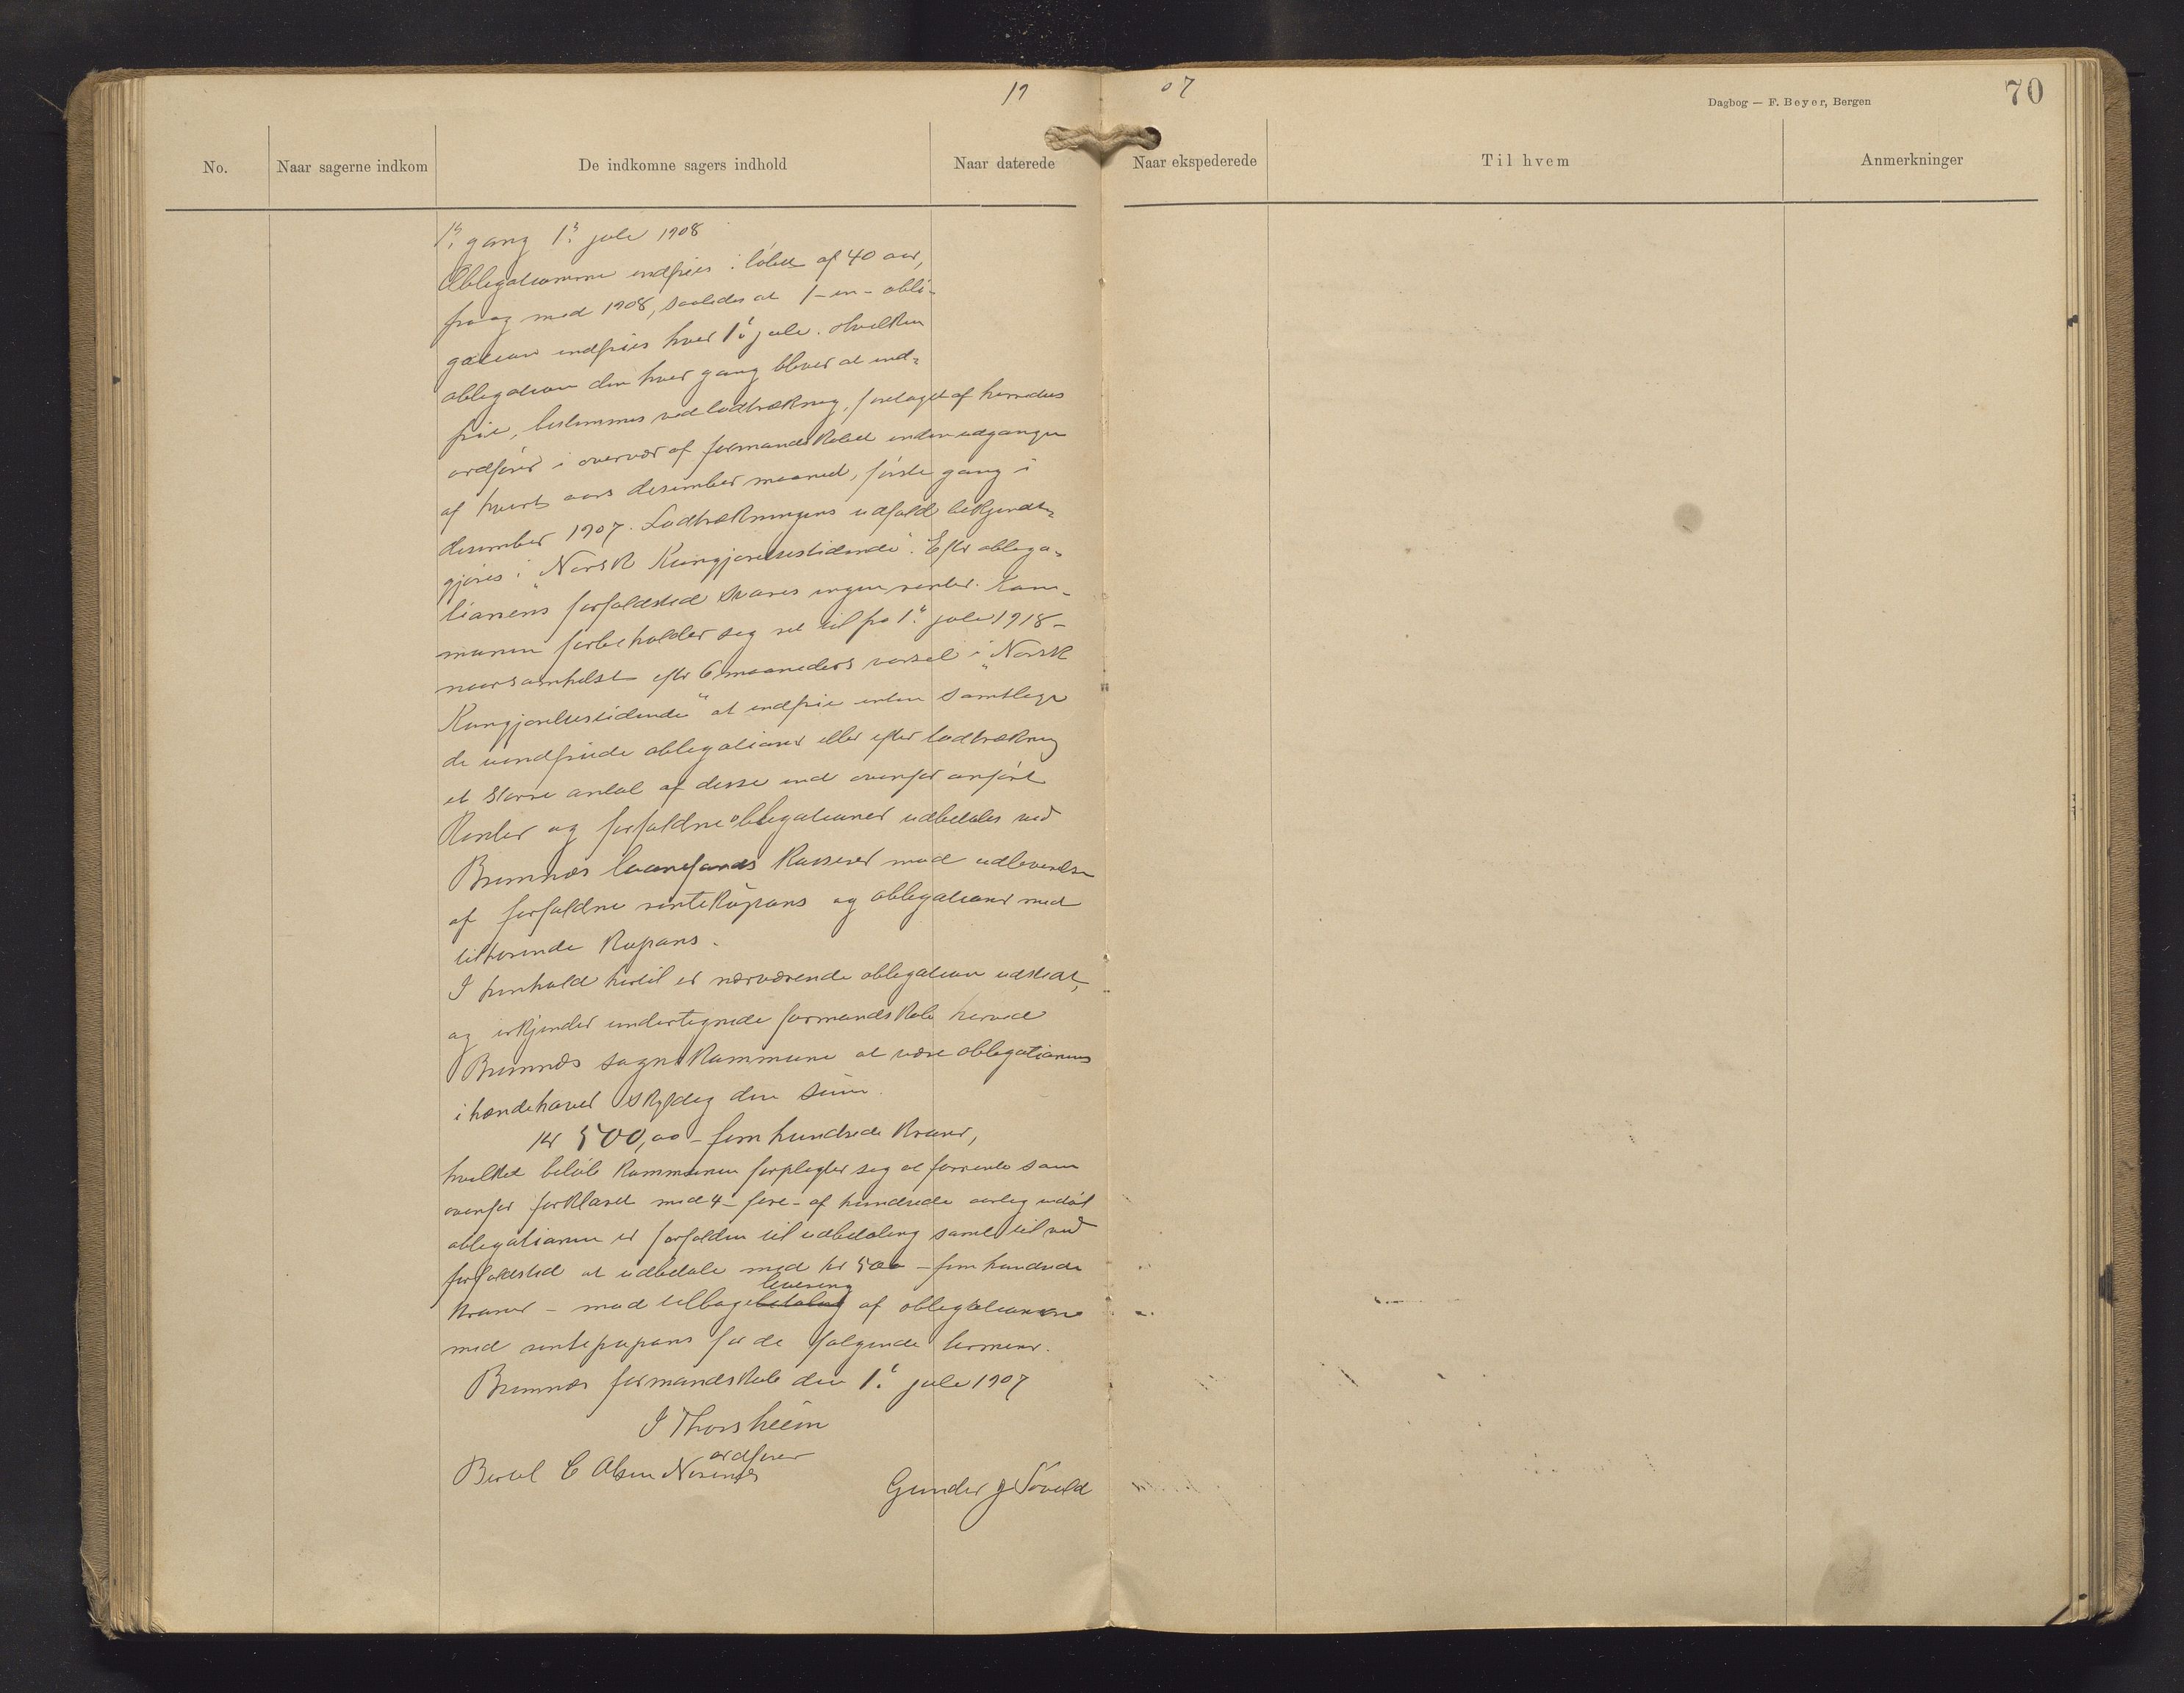 19 07
70
Dagbog — F. Beyer, Bergen
No. Naar sagerne indkom De indkomne sagers indhold Naar daterede Naar ekspederede Til hvem Anmerkninger
1ste gang 1ste juli 1908
Obligationerne indfries i løbet af 40 aar,
fra og med 1908, saaledes at 1 - en - obli-
gation indfries hver 1ste juli. Hvilken
obligation der hver gang bliver at ind-
frie, bestemmes ved lodtrækning, foretaget af herredets
ordfører i overvær af formandskabet inden udgangen
af hvert aars desember maaned, første gang i
desember 1907. Lodtrækningens udfald bekjendt-
gjøres i "Norsk Kungjørelsestidende". Efter obliga-
tionens forfaldstid svares ingen renter. Kom-
munen forbeholder seg ret til fra 1ste juli 1918 -
naarsomhelst efter 6 maaneders varsel i "Norsk
Kungjørelsestidende" at indfrie enten samtlige
de uindfriede obligationer eller efter lodtrækning
et større antal af disse end ovenfor anført
Renter og forfaldne obligationer udbetales ved
Bremnes laanefonds kasserer mod udleverelse
af forfaldne rentekupons og obligationer med
tilhørende kupons.
I henhold hertil er nærværende obligation udstedt,
og erkjender undertegnede formandskab herved
Bremnes sognekommune at være obligationens
ihændehaver skyldig den sum.
kr 500,00 - fem hundrede kroner,
hvilket beløb kommunen forpligter seg at forrente som
ovenfor forklaret med 4 - fire - af hundrede aarlig indtil
obligationen er forfalden til udbetaling samt til ved
forfaldstid at udbetale med kr 500 - fem hundrede
levering
kroner - mod tilbagebetaling af obligationen
med rentepupons for de følgende terminer.
Bremnes formandskab den 1ste juli 1907
J Thorsheim
ordfører
Bertel C Olsen
Gunder J